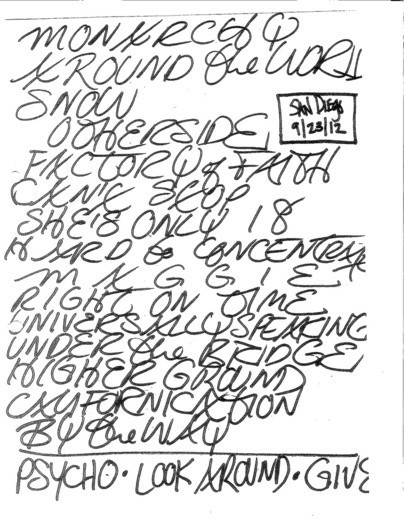 MONARCHY
AROUND the WORL
SNOW
SAN DIEGO
9/23/12
OTHERSIDE
FACTORY of FAITH
CAN'T STOP
SHE'S ONLY 18
HARD to CONCENTRATE
MAGGIE
RIGHT ON TIME
UNIVERSALLY SPEAKING
UNDER the BRIDGE
HIGHER GROUND
CALIFORNICATION
BY the WAY
PSYCHO · LOOK AROUND · GIVE